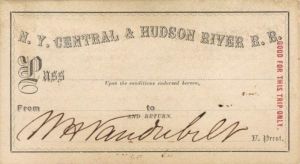 N. Y. CENTRAL & HUDSON RIVER R. R.
Pass
Upon the conditions endorsed hereon,
From to
AND RETURN.
WH Vanderbilt
V. Prest.
GOOD FOR THIS TRIP ONLY.